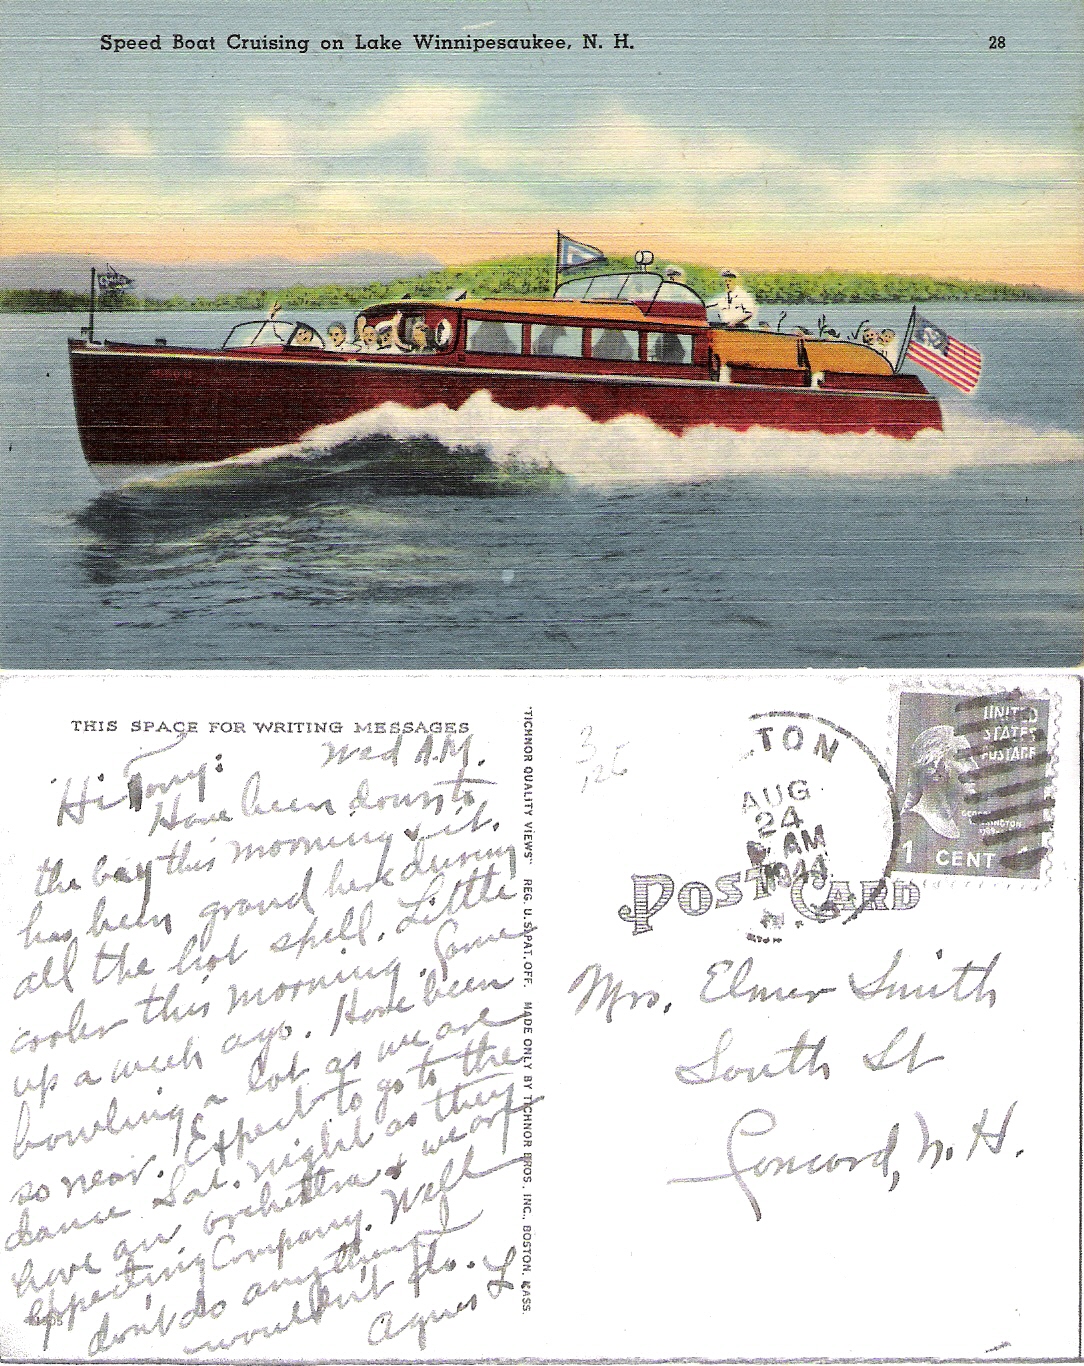 Speed Boat Cruising on Lake Winnipesaukee, N. H.
28
THIS SPACE FOR WRITING MESSAGES
Wed A.M.
Hi Tony:
Have been down to
the bay this morning & it
has been grand here during
all the hot spell. Little
cooler this morning. Came
up a week ago. Have been
bowling a lot as we are
so near. Expect to go to the
dance Sat. night as they
have an orchestra & we are
expecting Company. Well
don't do anything I
wouldn't do.
Agnes L.
"TICHNOR QUALITY VIEWS" REG. U. S. PAT. OFF. MADE ONLY BY TICHNOR BROS., INC., BOSTON, MASS.
TON
AUG
24
AM
1944
N.H.
UNITED
STATES
POSTAGE
1 CENT 1
POST CARD
Mrs. Elmer Smith
South St
Concord, N. H.